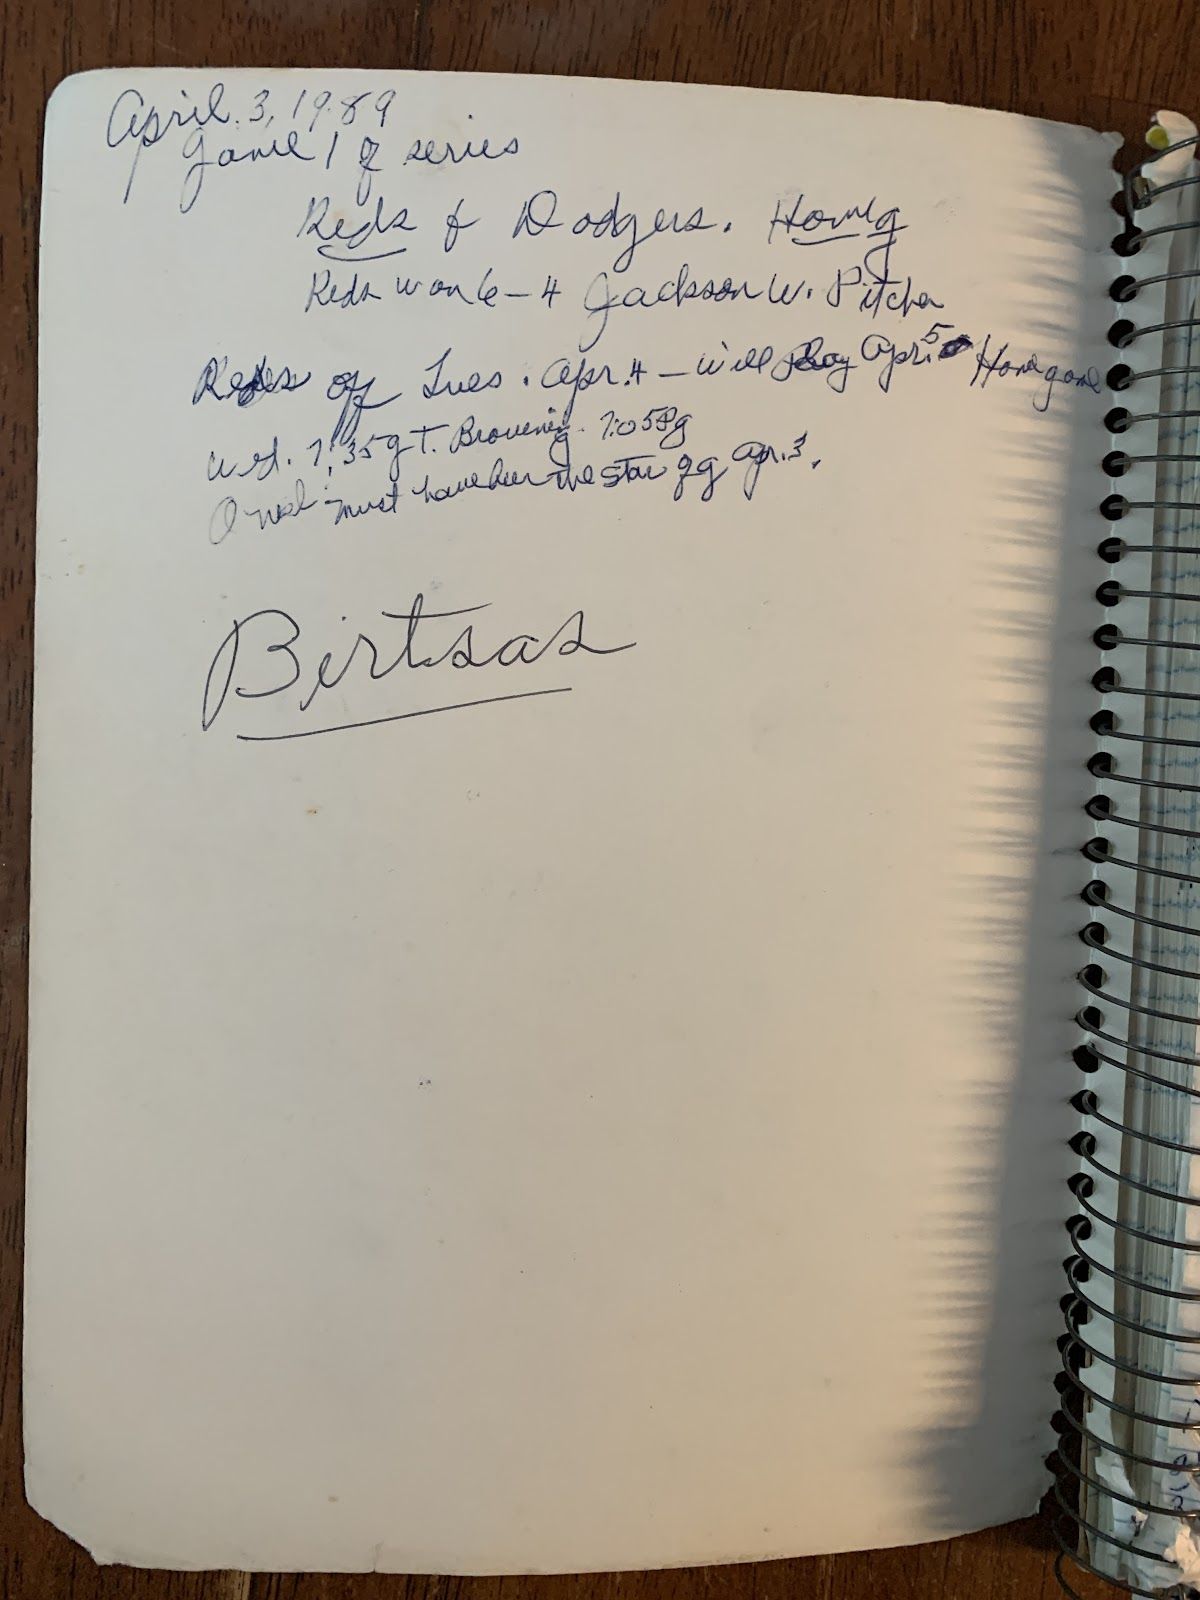 April 3, 1989
Game 1 of series
Reds & Dodgers. Home g
Reds won 6-4 Jackson W. Pitcher
Reds off Tues. Apr. 4 - will play Apr. 5 Home game
Wed. 7:35 g T. Browning. 7:05 Pg
O'neil - must have been the star of g Apr. 3.
Birtsas